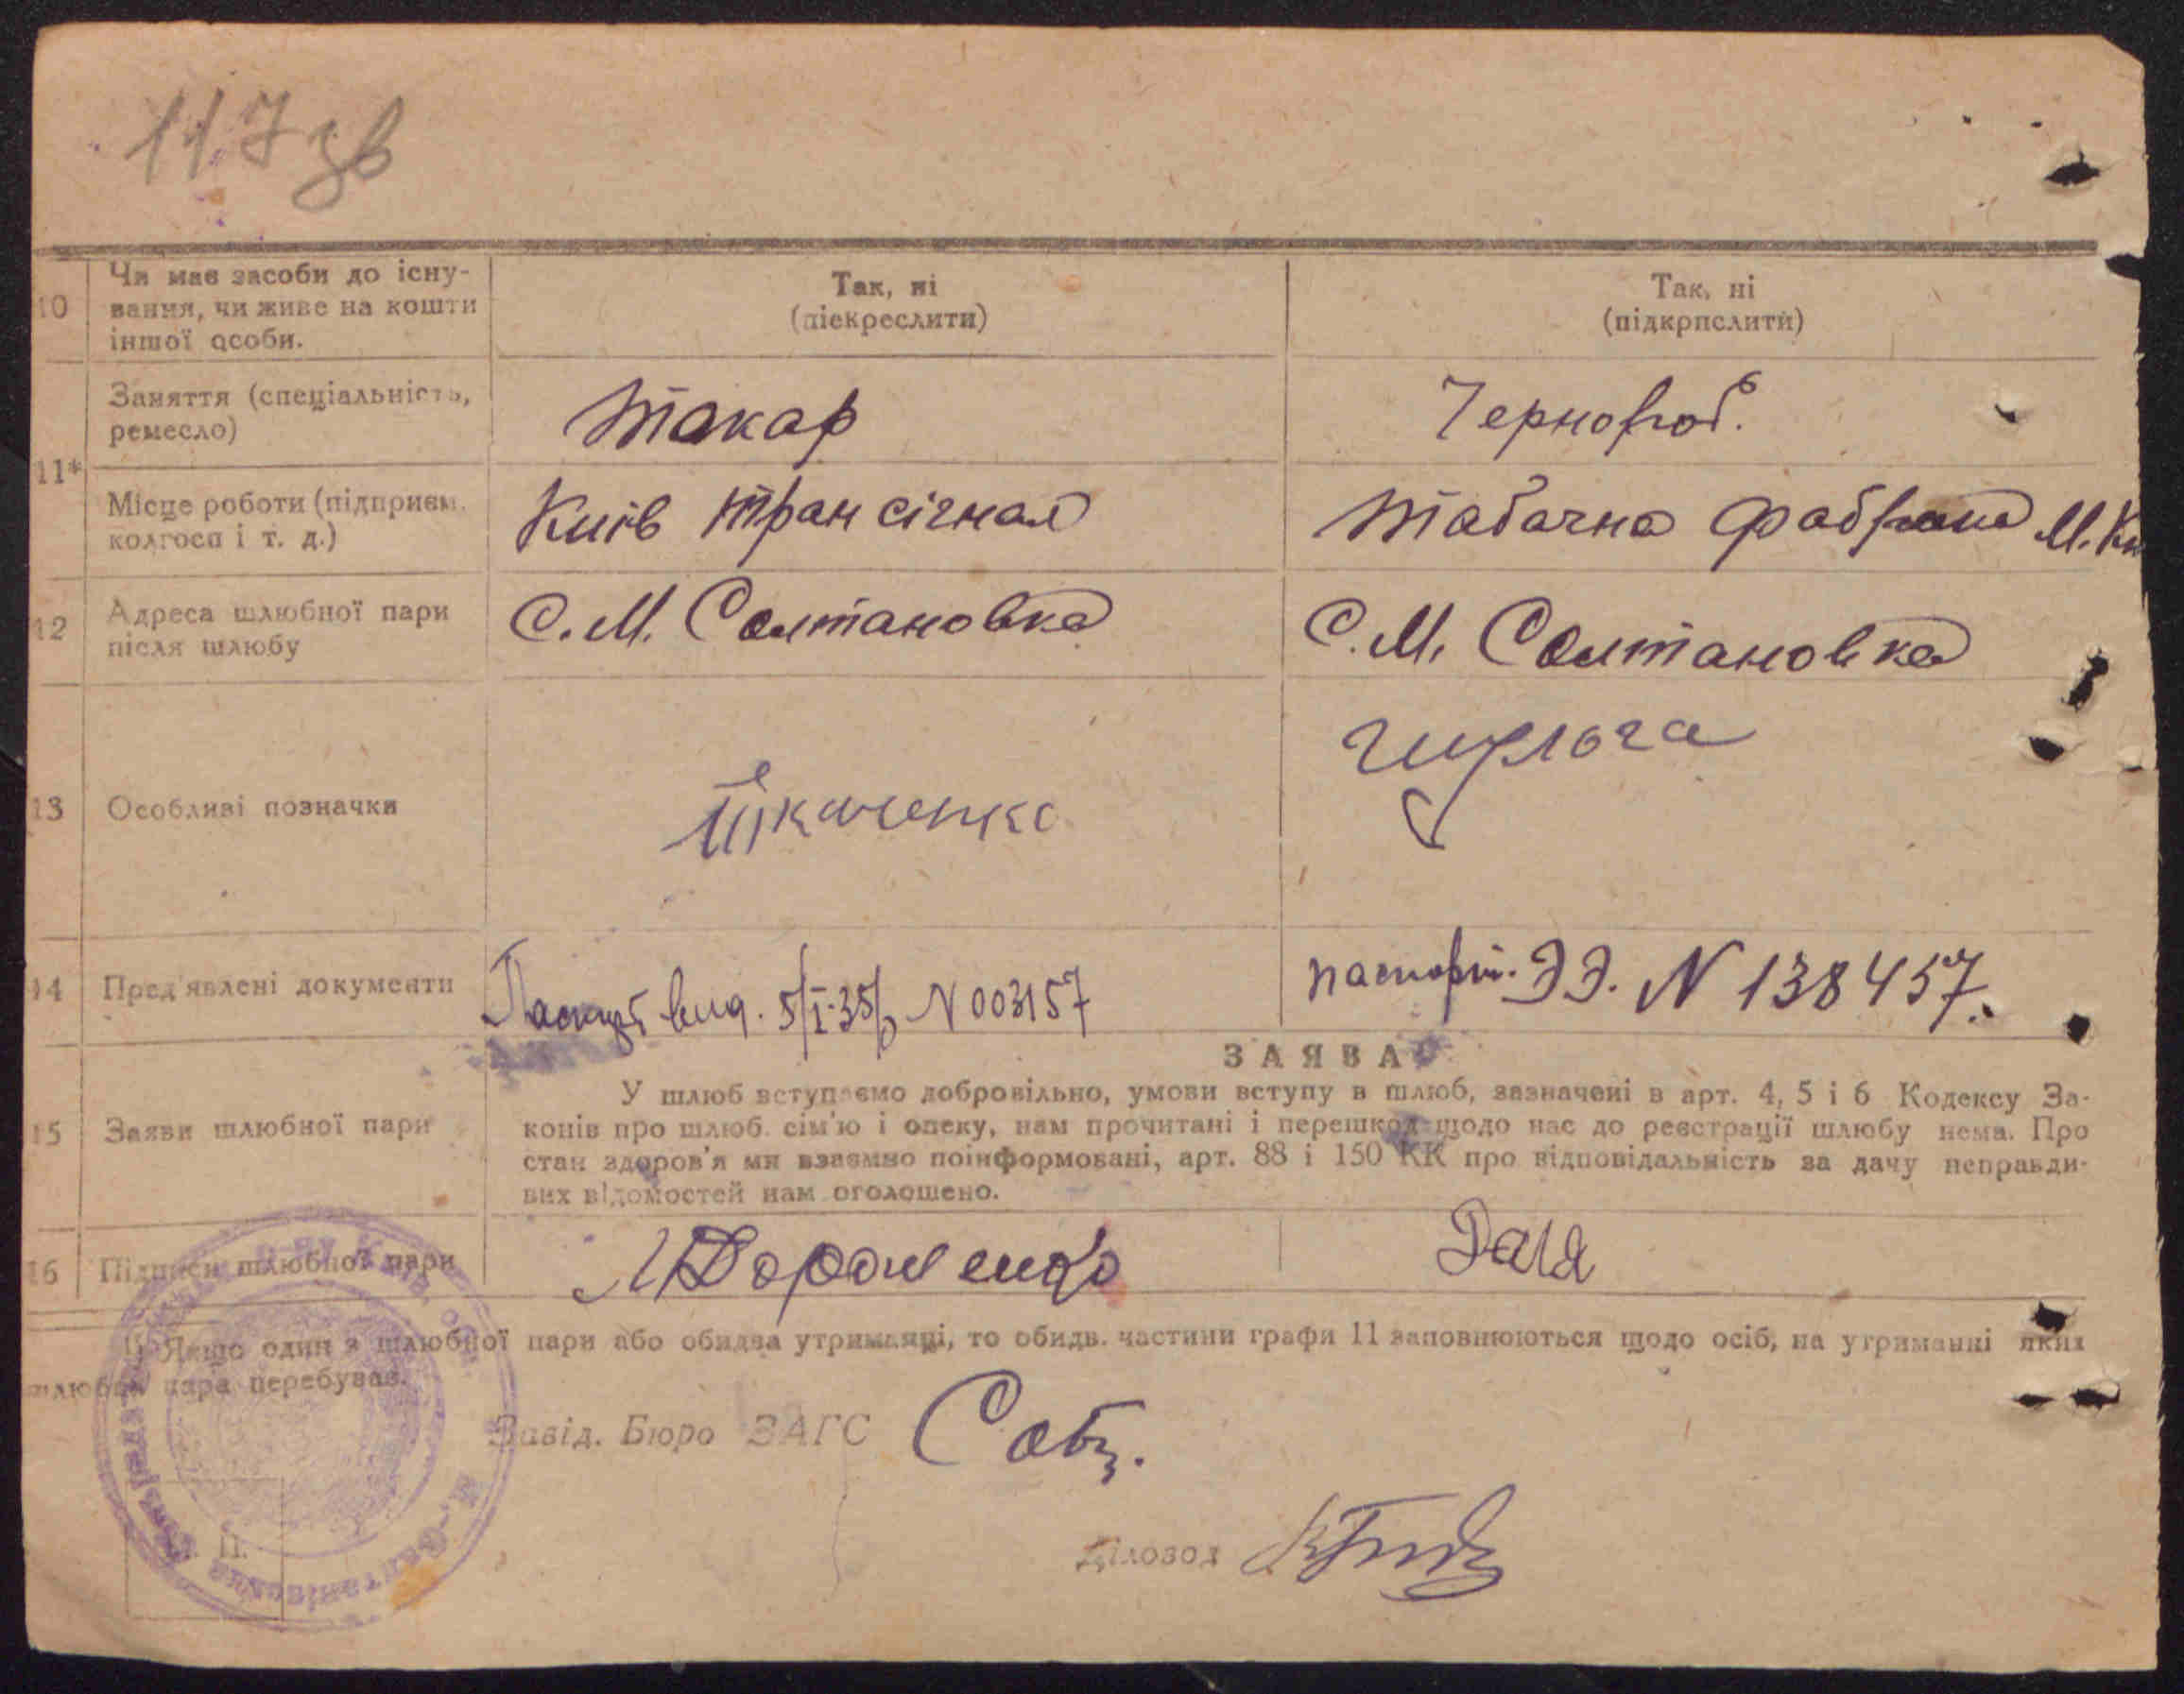 117 зв
10
Чи має засоби до існу-
вання, чи живе на кошти
іншої особи.
Так, ні
(піекреслити)
Так, ні
(підкрпслити)
11*
Заняття (спеціальність,
ремесло)
Токар
Чернороб.
Місце роботи (підприєм.
колгосп і т. д.)
Київ Трансігнал
Табачна фабрика М. Ки
12
Адреса шлюбної пари
після шлюбу
С. М. Солтановка
С. М. Солтановка
13
Особливі позначки
Ткаченко
14
Пред'явлені документи
Паспорт вид. 5/I-35/р N 003157
паспорт. ЭЭ. N 138457.
ЗАЯВА
15
Заяви шлюбної пари
У шлюб вступаємо добровільно, умови вступу в шлюб, зазначені в арт. 4, 5 і 6 Кодексу За-
конів про шлюб. сім'ю і опеку, нам прочитані і перешкод щодо нас до реєстрації шлюбу нема. Про
стан здоров'я ми взаємно поінформовані, арт. 88 і 150 КК про відповідальність за дачу неправди-
вих відомостей нам оголошено.
16
Підписи шлюбної пари
Якщо один з шлюбної пари або обидва утриманці, то обидв. частини графи 11 заповнюються щодо осіб, на утриманні яких
шлюбна пара перебуває.
Завід. Бюро ЗАГС
Діловод
П.